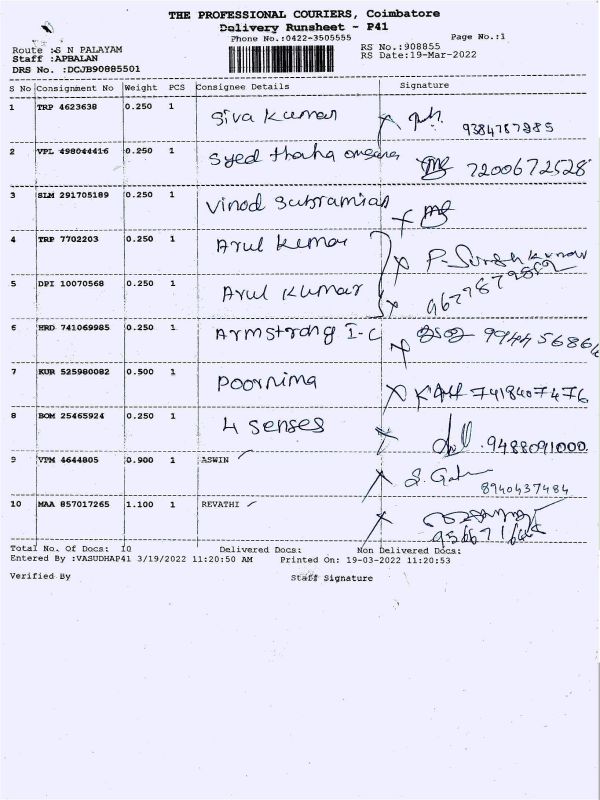 THE PROFESSIONAL COURIERS, Coimbatore
Delivery Runsheet - P41
Phone No.:0422-3505555
Page No.:1
Route :S N PALAYAM
RS No.:908855
Staff :APBALAN
RS Date:19-Mar-2022
DRS No. :DCJB90885501
S No Consignment No Weight PCS Consignee Details Signature
1 TRP 4623638 0.250 1 Siva Kumar 9384787285
2 VPL 498044416 0.250 1 Syed thaha 7200672528
3 SLM 291705189 0.250 1 Vinod Subramian
4 TRP 7702203 0.250 1 Arul Kumar P. Suresh Kumar
5 DPI 10070568 0.250 1 Arul Kumar
6 HRD 741069985 0.250 1 Armstrong I-C 994456864
7 KUR 525980082 0.500 1 Poornima 7418407476
8 BOM 25465924 0.250 1 4 senses 9488091000
9 VPM 4644805 0.900 1 ASWIN 8940437484
10 MAA 857017265 1.100 1 REVATHI
Total No. Of Docs: 10 Delivered Docs: Non Delivered Docs:
Entered By :VASUDHAP41 3/19/2022 11:20:50 AM Printed On: 19-03-2022 11:20:53
Verified By Staff Signature